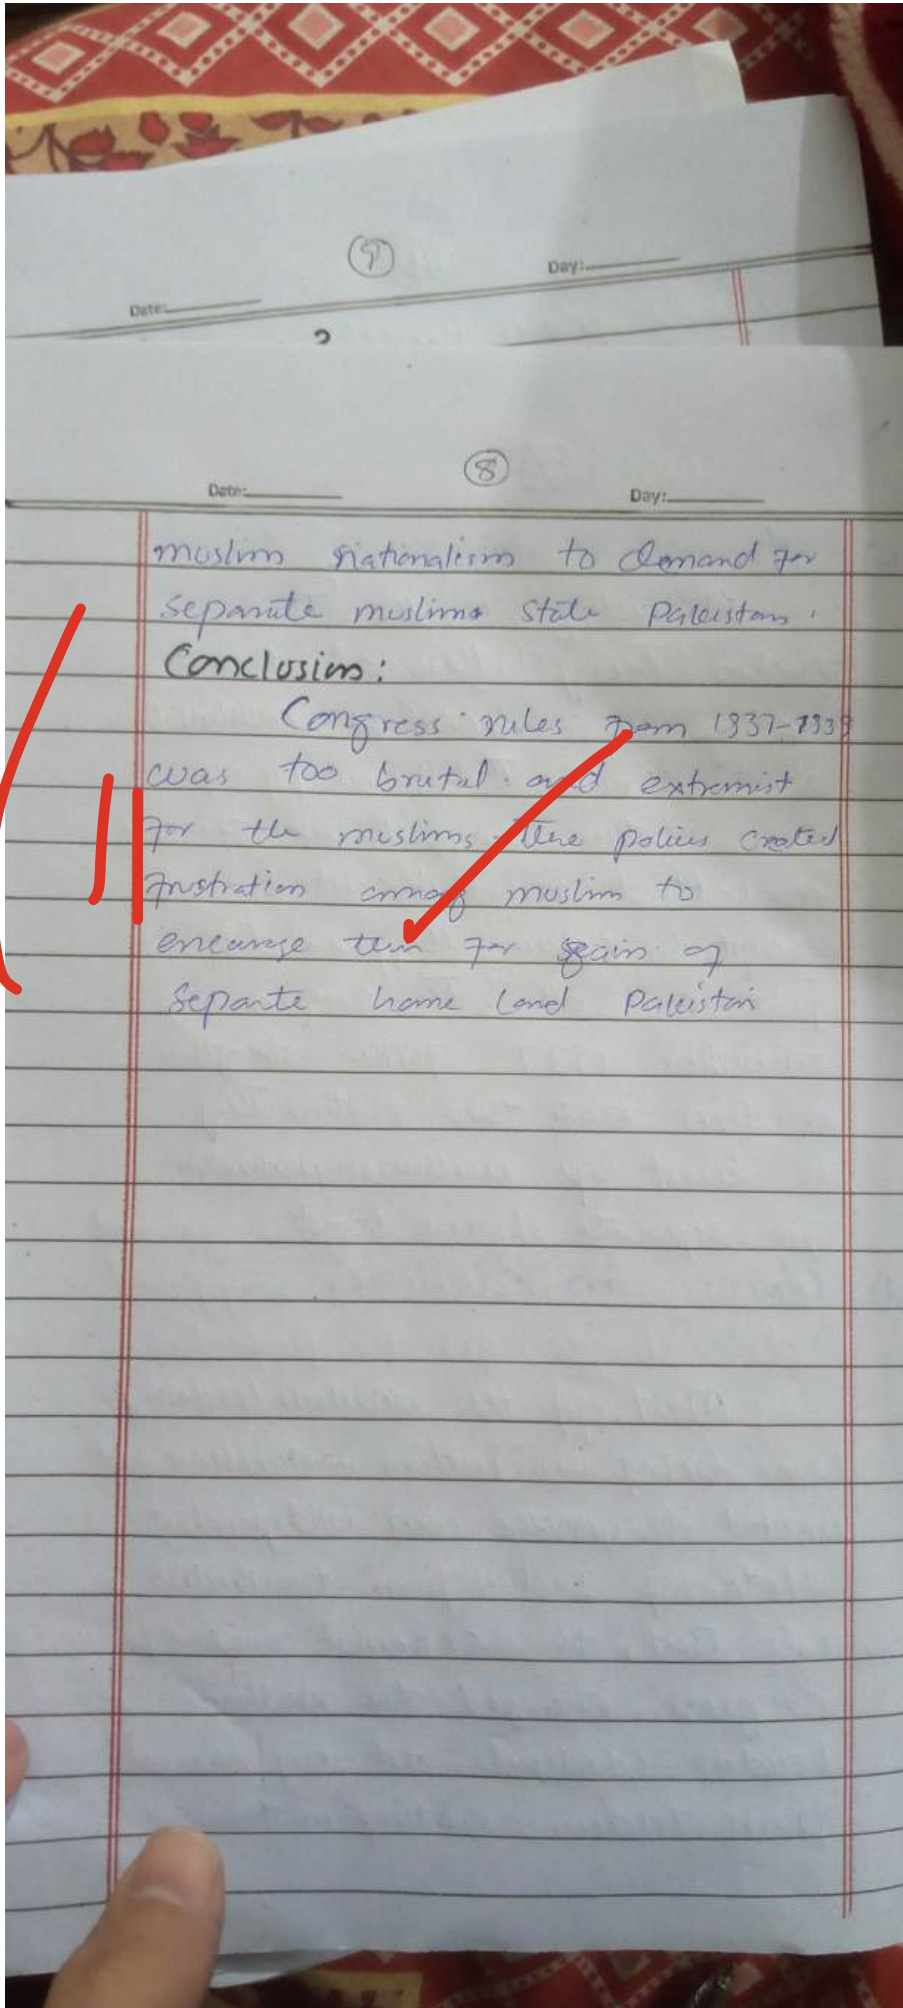 9
Day:
Date:
?
8
Date:
Day:
muslim nationalism to demand for
separate muslims state Pakistan.
Conclusion:
Congress rules from 1937-1939
was too brutal and extremist
for the muslims. There policies created
frustration among muslim to
encurage them for gain of
Separte home land Pakistan
11